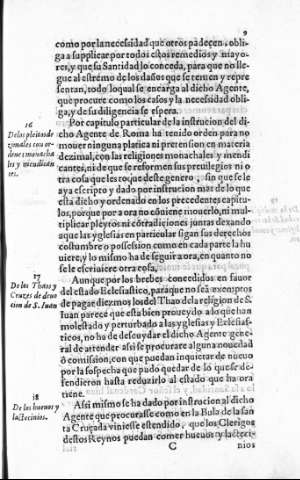 9
como por la necessidad que otros padecen, obli-
ga a supplicar por todos estos remedios y mayo-
res, y que su Santidad lo conceda, para que no lle-
gue al estremo de los daños que se temen y repre
sentan, todo lo qual se encarga al dicho Agente,
que procure como los casos y la necessidad obli-
ga, y de su diligencia se espera.
16
De los pleitos de
zimales con or-
denes monacha
les y mẽdicãtes
Por capitulo particular de la instrucion del di-
cho Agente de Roma ha tenido orden para no
mouer ninguna platica ni pretension en materia
dezimal, con las religiones monachales y mendi
cantes, ni de que se reformen sus preuilegios ni o
tra cosa que les toque deste genero, sin que se le
aya escripto y dado por instrucion mas de lo que
esta dicho y ordenado en los precedentes capitu
los, porque por aora no cõuiene mouerlo, ni mul
tiplicar pleytos ni cõtradiciones juntas dexando
a que las yglesias en particular sigan sus derechos
costumbre o possession como en cada parte la hu
uiere, y lo mismo ha de seguir a ora, en quanto no
se le escriuiere otra cosa.
17
De los Thaos y
Cruzes de deuo
cion de S. Iuan
Aunque por los brebes concedidos en fauor
del estado Eclesiastico, para que no seã exemptos
de pagar diezmos los del Thao de la religion de S.
Iuan parece que esta bien proueydo a lo que han
molestado y perturbado a las yglesias y Eclesias-
ticos, no ha de descuydar el dicho Agente gene-
ral de attender assi se procurare alguna nouedad
ò comission, con que puedan inquietar de nueuo
por la sospecha que pudo quedar de lo que se de-
fendieron hasta reduzirlo al estado que ha ora
tiene.
18
De los hueuos y
lacticinios.
Assi mismo se ha dado por instrucion al dicho
Agente que procurasse como en la Bula de la san
ta Cruzada viniesse estendido, que los Clerigos
destos Reynos puedan comer hueuos y lacteci-
C
nios